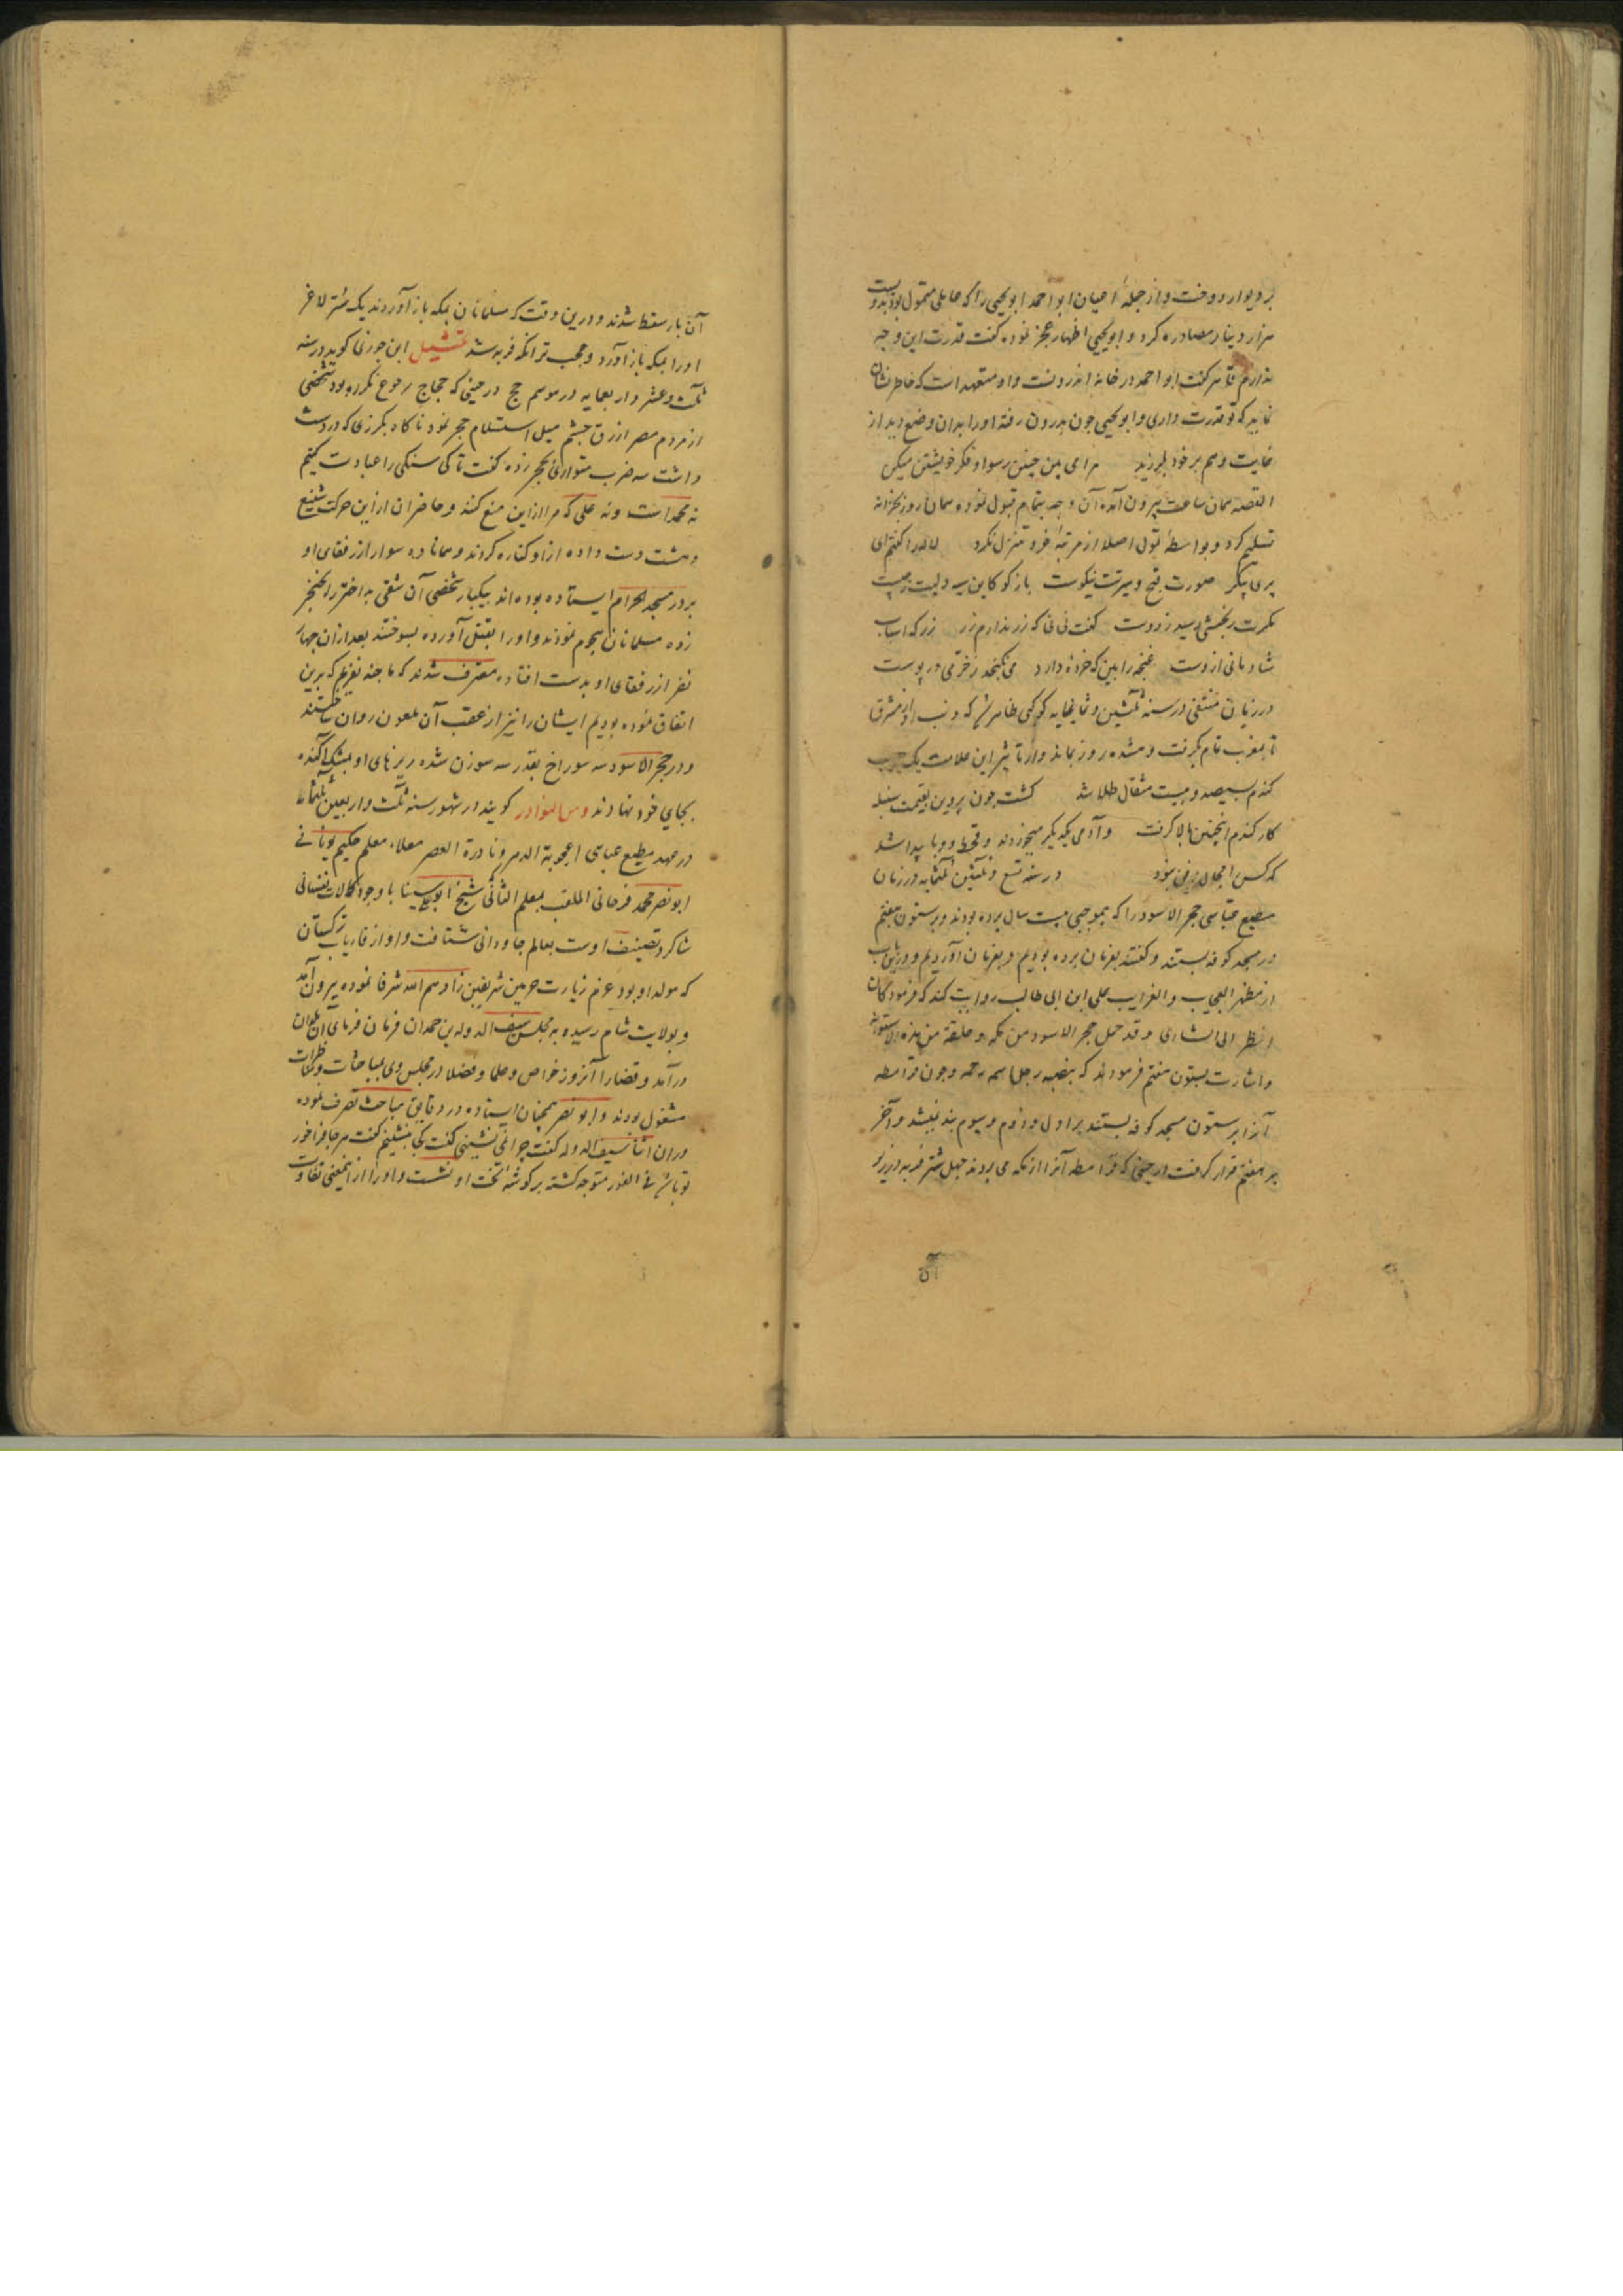 بر دیوار دوخت و از جملهٔ اعیان ابو احمد ابو یحیی را که عاملی متمول بود بدویست
هزار دینار مصادره کرد و ابو یحیی اظهار عجز نموده گفت قدرت این وجه
ندارم قاهر گفت ابو احمد در خانهٔ اندرونست و او متعهد است که خاطر نشان
نماید که تو قدرت داری و ابو یحیی چون بدرون رفته او را بدان وضع دید از
غایت وهم بر خود بلرزید مرا می بین چنین رسوا و فکر خویشتن میکن
القصه همان ساعت بیرون آمده آن وجه بتمام قبول نموده همان روز بخزانه
تسلیم کرد و بواسطهٔ تمول اصلا از مرتبهٔ خود تنزل نکرد لاله را گفتم ای
پری پیکر صورت قبح و سیرت نیکوست باز کو کاین سیه دلیت ز چیست
مکرمت رنجشی رسید ز دوست گفت نی نی که زر ندارم زر زر که اسباب
شادمانی ازوست غنچه را بین که خرده دارد می نکنجد ز خرمی در پوست
در زمان متقی در سنه ثلثین و ثلثمایه کوکبی ظاهر شد که ذنب او از مشرق
تا بمغرب تمام بگرفت و هشده روز بماند و از تاثیر این علامت یک
کندم بسیصد و بیست مثقال طلا شد کشت چون پروین بقیمت سنبله
کار کندم اینچنین بالا گرفت و آدمی یکدیگر میخوردند و قحط و وبا پیدا شد
که کس را مجال دفن نبود در سنه تسع و ثلثین و ثلثمایه در زمان
مطیع عباسی حجر الاسود را که بموجبی بیست سال برده بودند و بر ستون هفتم
در مسجد کوفه بستند و گفتند بفرمان برده بودیم و بفرمان آوردیم و درین باب
از مظهر العجایب و الغرایب علی ابن ابی طالب روایت کند که فرمود کان
انظر الی الشاری و قد حمل حجر الاسود من مکه و علقه من هذه الاستوانه
و اشارت بستون هفتم فرمودند که ینصبه رجل اسمه رحمه و چون قرامطه
آنرا بر ستون مسجد کوفه بستند بر اول و دوم و سیوم بند نبشد و آخر
بر هفتم قرار گرفت در حینی که قرامطه آنرا از مکه می بردند چهل شتر فربه در زیر
آن
آن بار سقط شدند و درین وقت که مسلمانان بمکه باز آوردند یک شتر لاغر
او را بمکه باز آورد و عجب تر انکه فربه شد تمثیل ابن جوزی گوید در سنه
ثلث و عشر و اربعمایه در موسم حج در حینی که حجاج رجوع نکرده بود شخصی
از مردم مصر ازرق چشم میل استلام حجر نمود ناگاه بگرزی که در دست
داشت سه ضرب متواری بحجر زده گفت تا کی سنگی را عبادت کنیم
نه محمد است و نه علی که مرا ازاین منع کند و حاضران از این حرکت شنیع
دهشت دست داده ازو کناره کردند و همانا ده سوار از رفقای او
بر در مسجد الحرام ایستاده بوده اند بیکبار شخصی آن شقی بد اختر را بخنجر
زده مسلمانان هجوم نمودند و او را بقتل آورده بسوختند بعد ازان چهار
نفر از رفقای او بدست افتاده معترف شدند که ما چند نفریم که برین
اتفاق نموده بودیم ایشان را نیز از عقب آن ملعون روان ساختند
و در حجر الاسود سه سوراخ بقدر سه سوزن شده ریزهای او بمشک آکنده
بجای خود نهادند و من النوادر گویند در شهور سنه ثلث و اربعین ثلثمائه
در عهد مطیع عباسی اعجوبة الدهر و نادرة العصر معلاء معلم حکیم یونانی
ابو نصر محمد فرخانی الملقب بمعلم الثانی شیخ ابو علی سینا با وجود کمالات نفسانی
شاگرد تصنیف اوست بعالم جاودانی شتافت و او از فاریاب ترکستان
که مولد او بود عزم زیارت حرمین شریفین زادهم الله شرفا نموده بیرون آمد
و بولایت شام رسیده به مجلس سیف الدوله بن حمدان فرمان فرمای آن بلدان
درآمد و قضارا آنروز خواص و علما و فضلا در مجلس وی بمباحثات و مناظرات
مشغول بودند و ابو نصر همچنان ایستاده در دقایق مباحث تصرف نموده
دران اثنا سیف الدوله گفت چرا نمی نشینی گفت کجا بنشینم گفت هر جا فراخور
تو باشد فی الفور متوجه گشته بر گوشهٔ تخت او نشست و او را از این معنی تفاوت